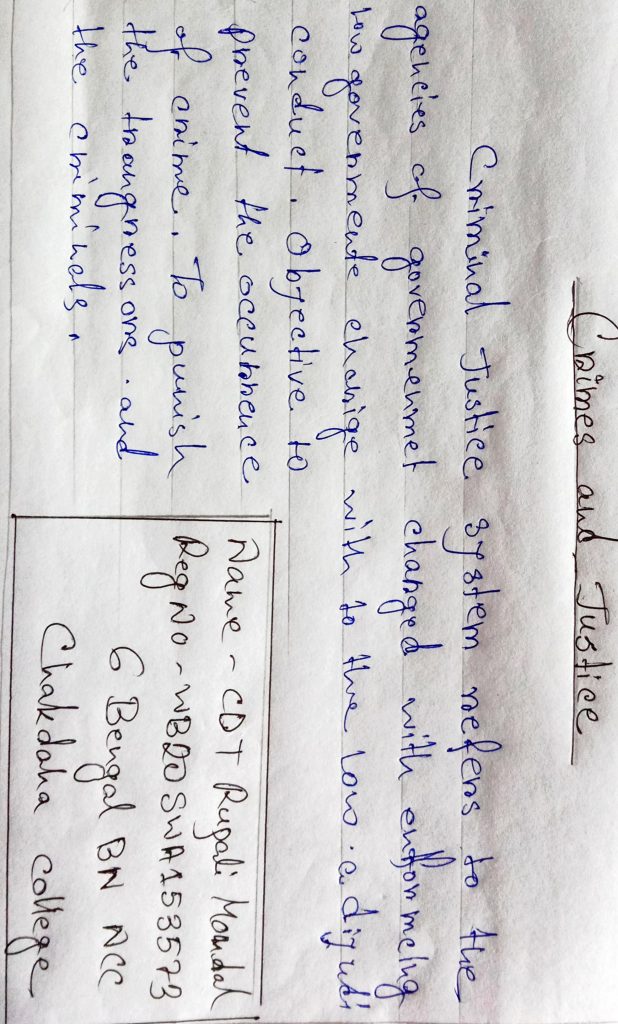 Crimes and Justice
Criminal Justice system refers to the
agencies of govermenmet changed with enfformcing
low governmente change with to the low. a digruti
conduct. Objective to
prevent the occurrence
of crime. To punish
the trangressors. and
the criminals.
Name - CDT Rupali Mondal
Reg No - WB20SWA153573
6 Bengal BN NCC
Chakdaha college